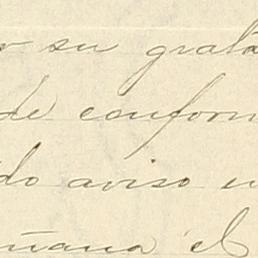 su grata
de conform
do aviso
ñana el